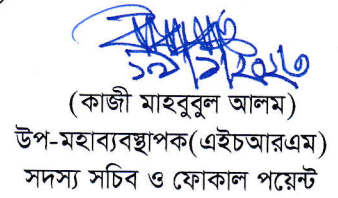 ১৯/১/২০২৩
(কাজী মাহবুবুল আলম)
উপ-মহাব্যবস্থাপক(এইচআরএম)
সদস্য সচিব ও ফোকাল পয়েন্ট